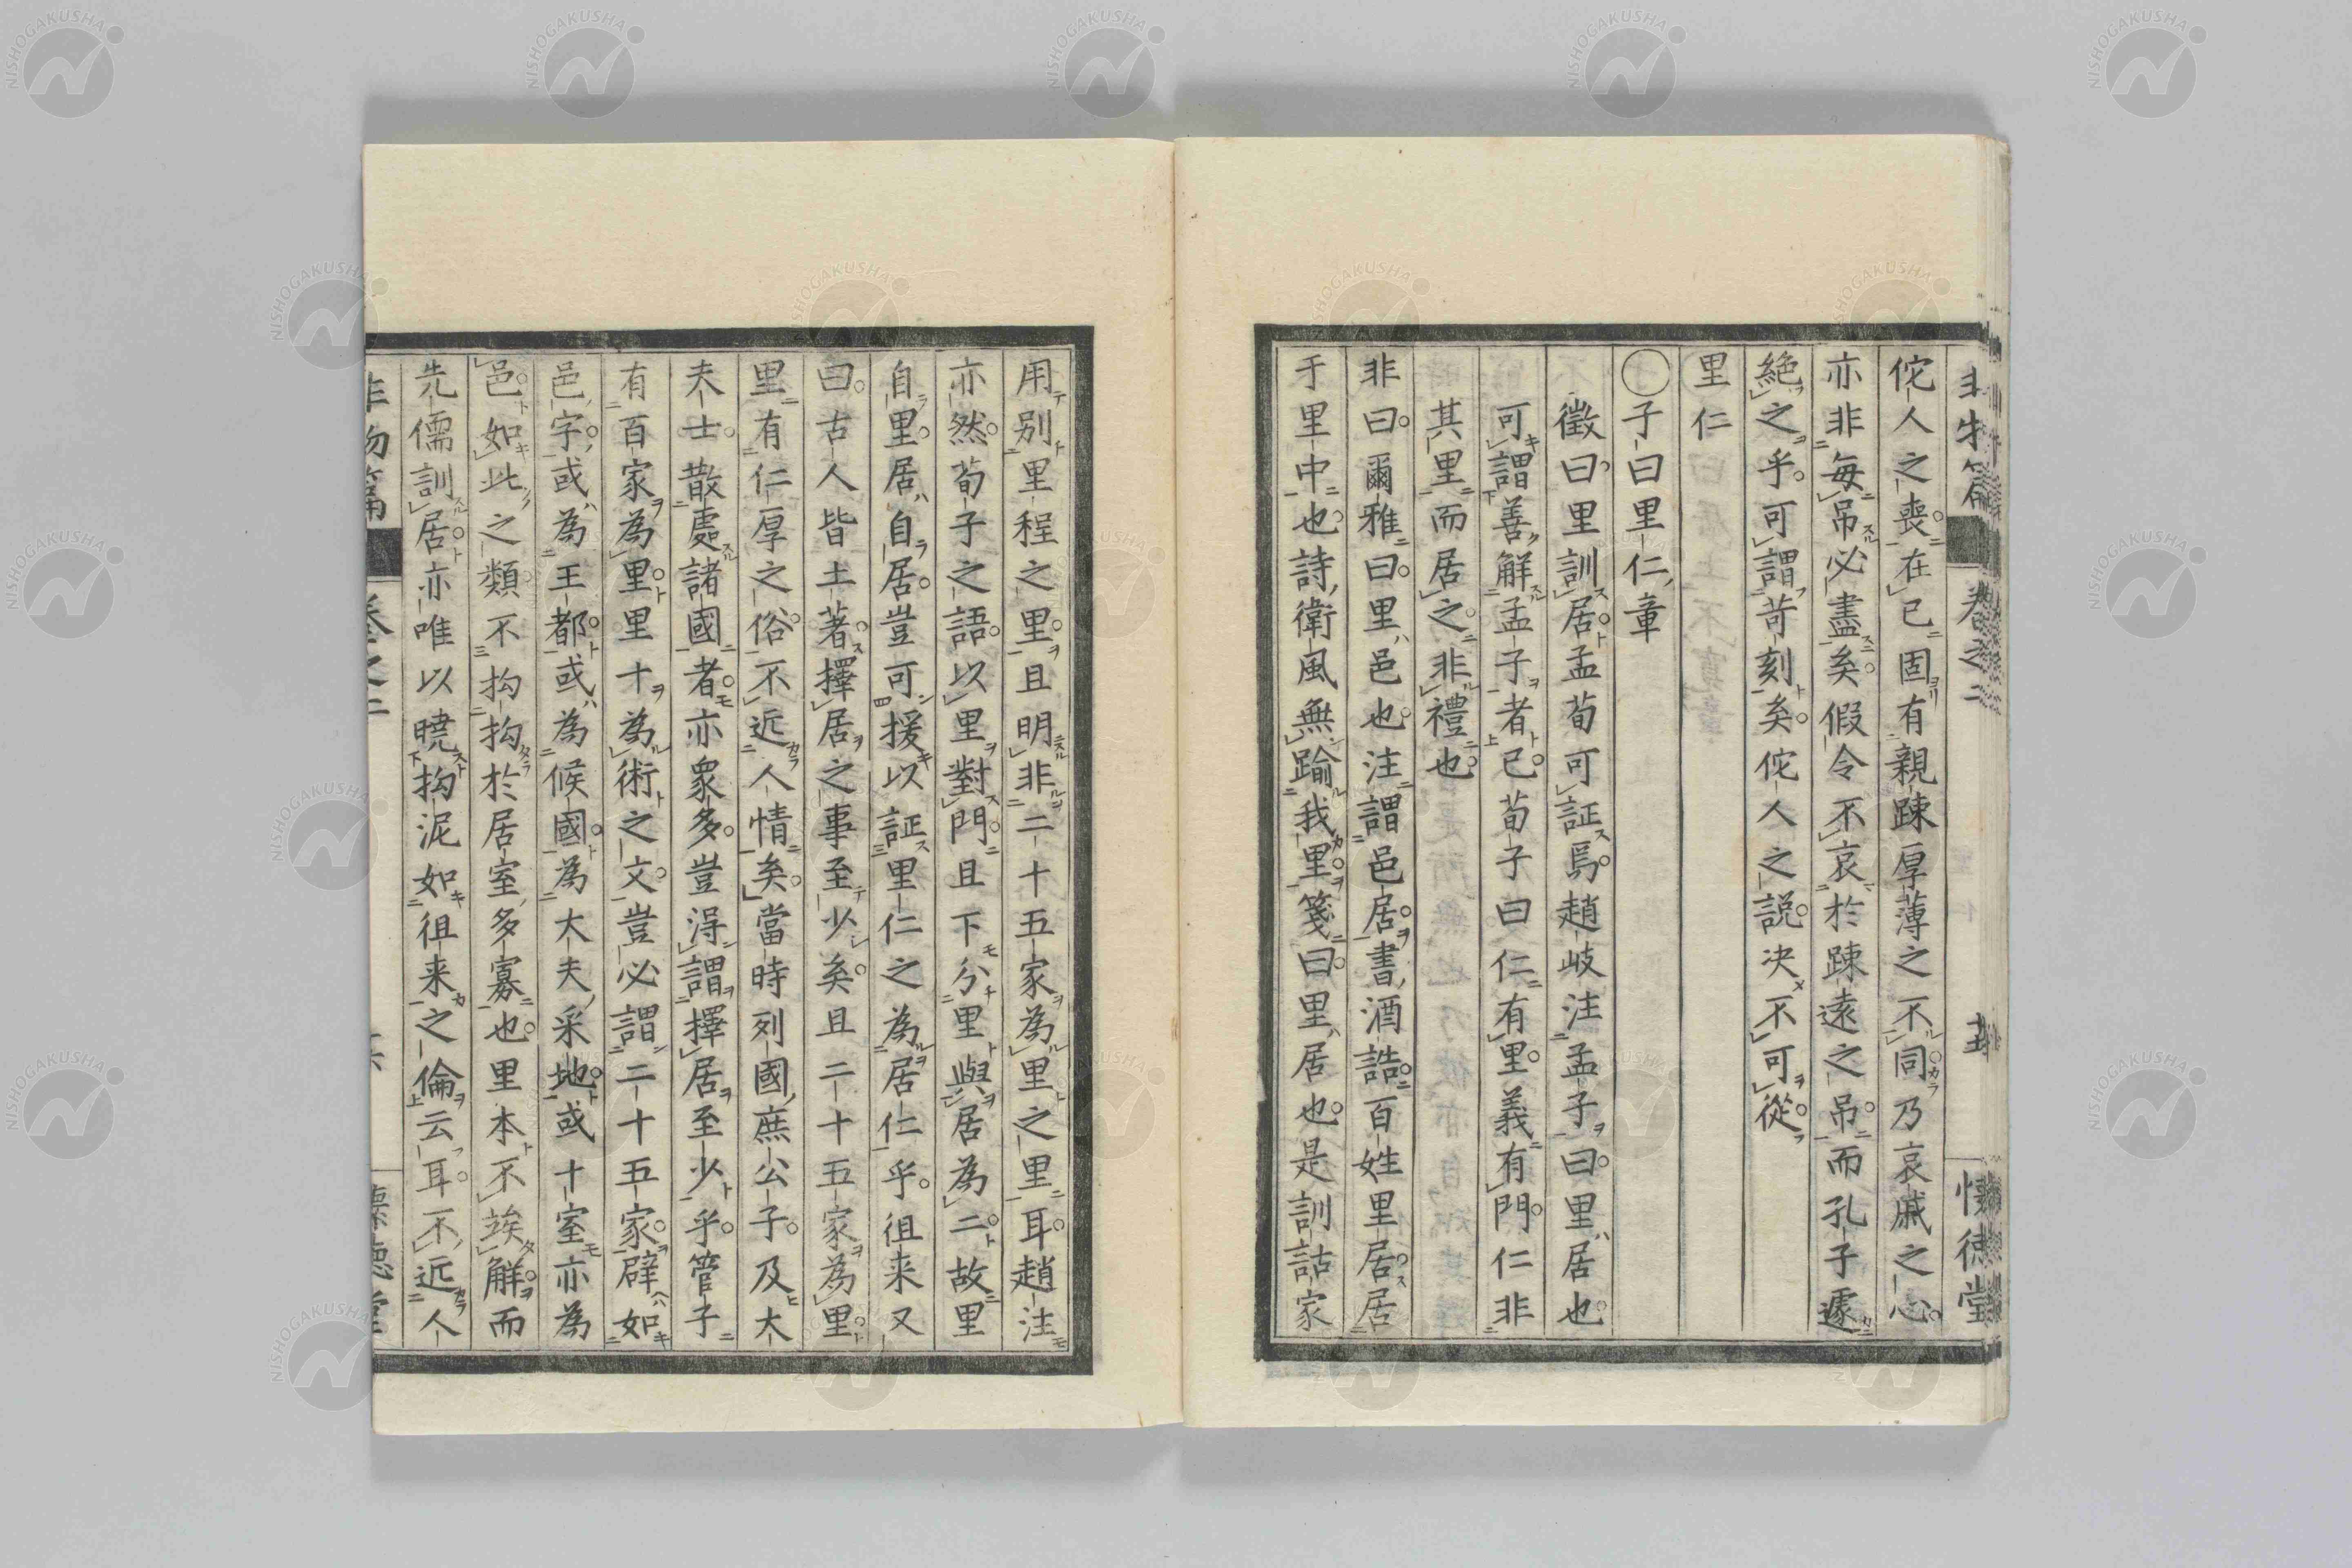 佗人之喪在已固有親踈厚薄之不同乃哀戚之心
亦非每吊必盡矣假令不哀於踈遠之吊而孔子遽
絶之乎可謂苛刻矣佗人之説决不可從
里仁
○子曰里仁章
徵曰里訓居孟荀可証焉趙岐注孟子曰里居也
可謂善解孟子者已荀子曰仁有里義有門仁非
其里而居之非禮也
非曰爾雅曰里邑也注謂邑居書酒誥百姓里居居
于里中也詩衛風無踰我里箋曰里居也是訓詁家
用別里程之里且明非二十五家為里之里耳趙注
亦然荀子之語以里對門且下分里與居為二故里
自里居自居豈可援以証里仁之為居仁乎徂来又
曰古人皆土著擇居之事至少矣且二十五家為里
里有仁厚之俗不近人情矣當時列國庶公子及大
夫士散處諸國者亦衆多豈得謂擇居至少乎管子
有百家為里里十為術之文豈必謂二十五家辟如
邑字或為王都或為候國為大夫采地或十室亦為
邑如此之類不拘拘於居室多寡也里本不竢解而
先儒訓居亦唯以曉拘泥如徂来之倫云耳不近人
非物篇
卷之二
懐徳堂
NISHOGAKUSHA